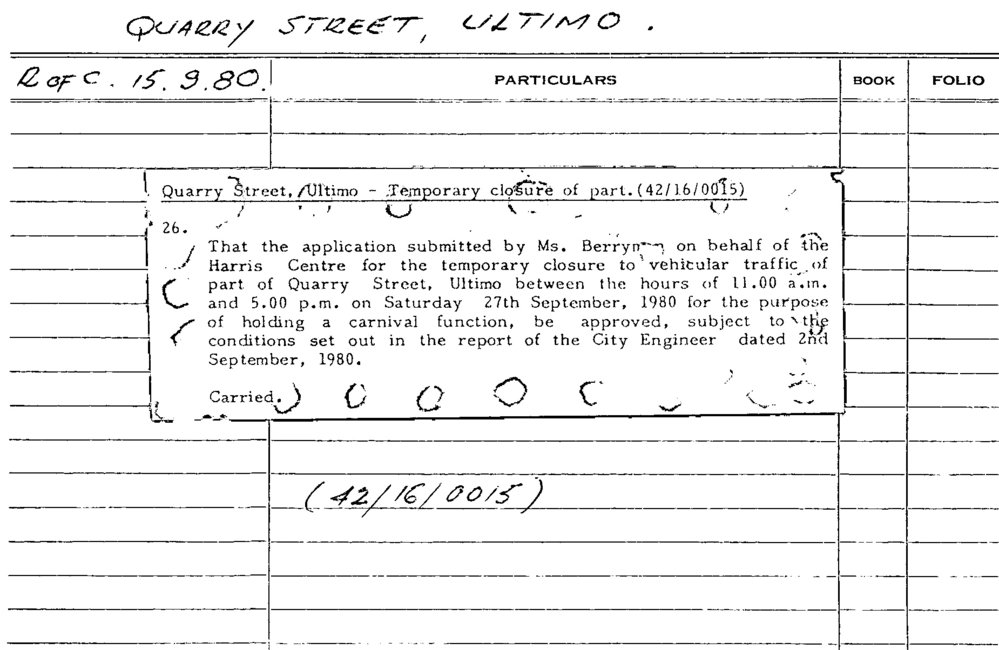 QUARRY STREET, ULTIMO.
R OF C. 15.9.80. PARTICULARS BOOK FOLIO
Quarry Street, Ultimo - Temporary closure of part.(42/16/0015)
26.
That the application submitted by Ms. on behalf of the
Harris Centre for the temporary closure to vehicular traffic of
part of Quarry Street, Ultimo between the hours of 11.00 a.m.
and 5.00 p.m. on Saturday 27th September, 1980 for the purpose
of holding a carnival function, be approved, subject to the
conditions set out in the report of the City Engineer dated 2nd
September, 1980.
Carried.
(42/16/0015)